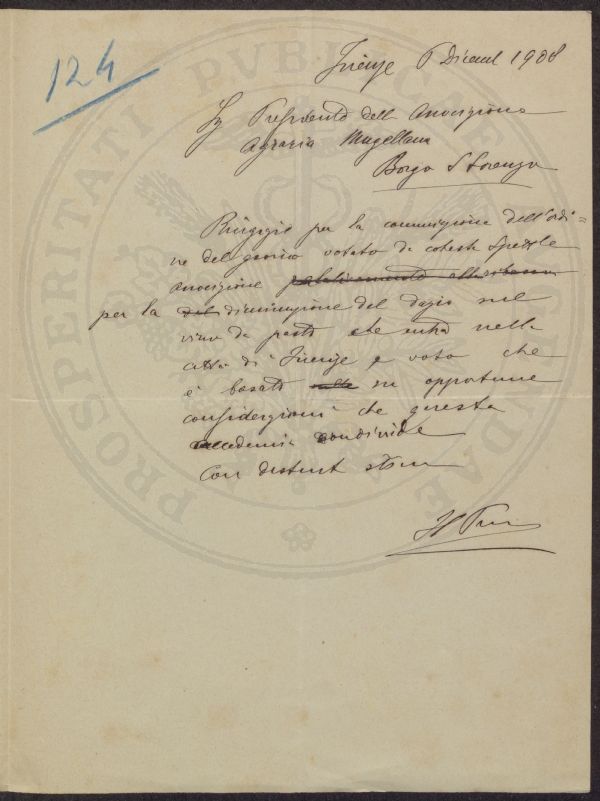 124
Firenze 6 Dicemb 1908
Sg Presidente dell Associazione
Agraria Mugellana
Borgo S Lorenzo
Ringrazio per la comunicazione dell'ordi=
ne del giorno votato da codesta Spettle
Associazione relativamente alla riduzione
per la del diminuzione del dazio sul
vino da pasto che entra nella
città di Firenze e voto che
è basato su opportune
considerazioni che questa
accademia condivide
Con distint stima
Il Pres
PROSPERITATI PVBLICAE AVGENDAE